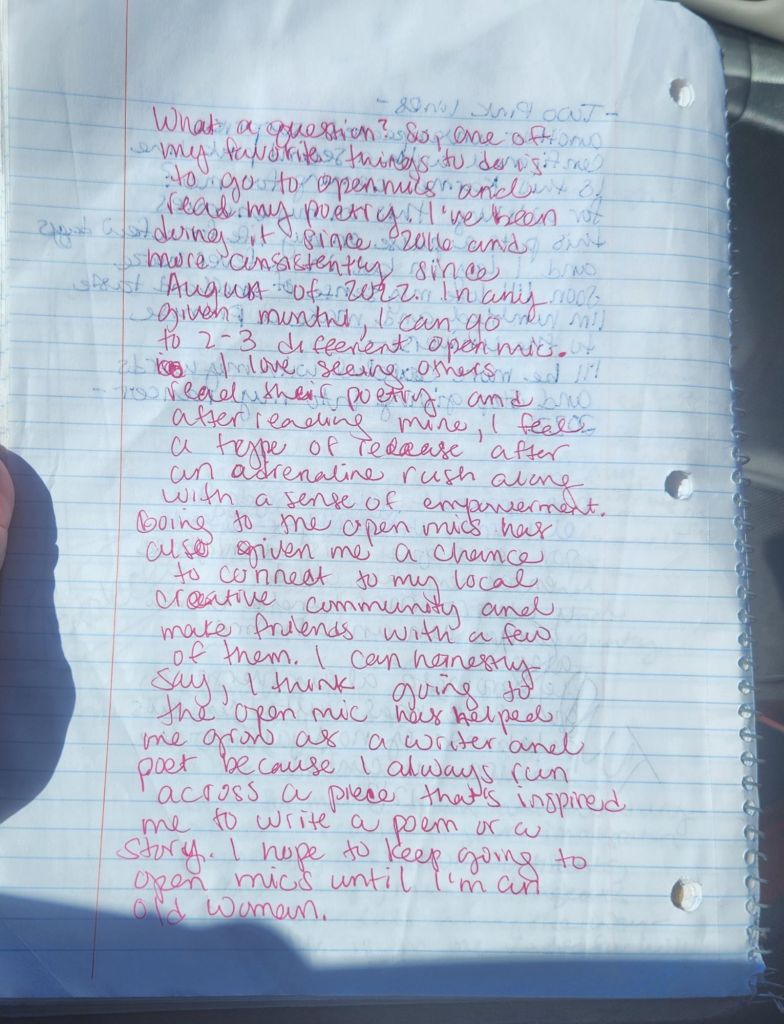 What a question? So, one of
my favorite things to do is
to go to open mics and
read my poetry. I've been
doing it since 2016 and
more consistently since
August of 2022. In any
given month, I can go
to 2-3 different open mics.
I love seeing others
read their poetry and
after reading mine, I feel
a type of release after
an adrenaline rush along
with a sense of empowerment.
Going to the open mics has
also given me a chance
to connect to my local
creative community and
make friends with a few
of them. I can honestly
say, I think going to
the open mic has helped
me grow as a writer and
poet because I always run
across a piece that's inspired
me to write a poem or a
story. I hope to keep going to
open mics until I'm an
old woman.